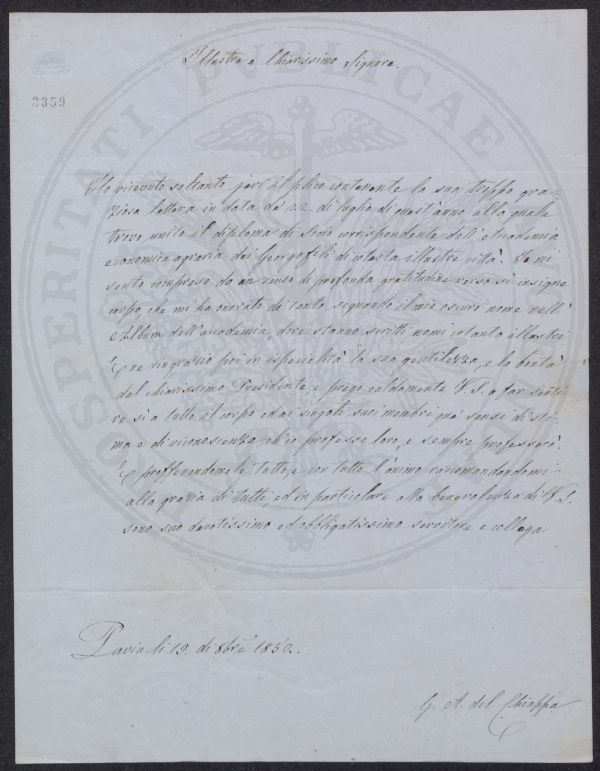 Illustre e Chiarissimo Signore
3359
PROSPERITATI PUBLICAE
Ho ricevuto soltanto jeri il plico contenente la sua troppo gra-
ziosa lettera in data de 22. di luglio di quest'anno alla quale
trovo unito il diploma di Socio corrispondente dell'Accademia
economico agraria dei Georgofili di cotesta illustre città. Io mi
sento compreso da un senso di profonda gratitudine verso sì insigne
corpo, che mi ha onorato di tanto, segnando il mio oscuro nome nell'
Album dell'accademia, dove stanno scritti nomi cotanto illustri
E ne ringrazio poi in ispecialità la sua gentilezza, e la bontà
del chiarissimo Presidente e prego caldamente V. S. a far senti-
re sì a tutto il corpo ed ai singoli suoi membri que' sensi di sti-
ma e di riconoscenza ch'io professo loro, e sempre professerò.
E profferendomele tutto, e con tutto l'animo raccomandandomi
alla grazia di tutti, ed in particolare alla benevolenza di V. S.
sono suo devotissimo ed obbligatissimo servitore e collega
Pavia li 19. di 8bre 1852.
G. A. del Chiappa